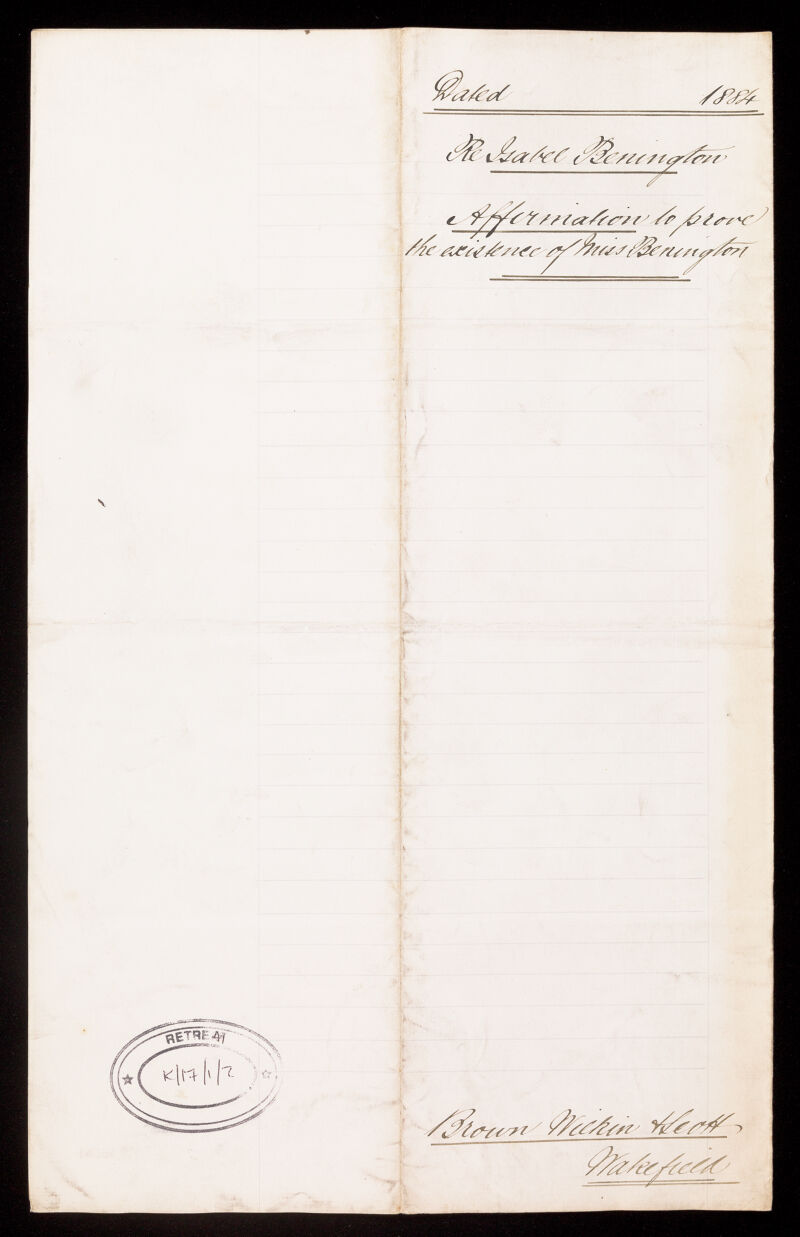 Dated 1884
Re Isabel Benington
Affirmation to prove
the existence of Miss Benington
RETREAT
K/17/1/2
Brown Wilkin & Scott
Wakefield